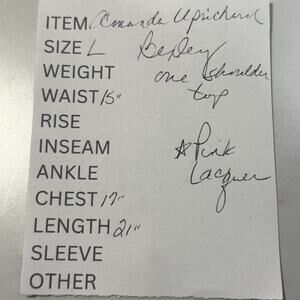 ITEM Amanda Uprichard
SIZE L Bexley
WEIGHT one shoulder
WAIST 15" top
RISE
INSEAM * Pink
ANKLE Lacquer
CHEST 17"
LENGTH 21"
SLEEVE
OTHER